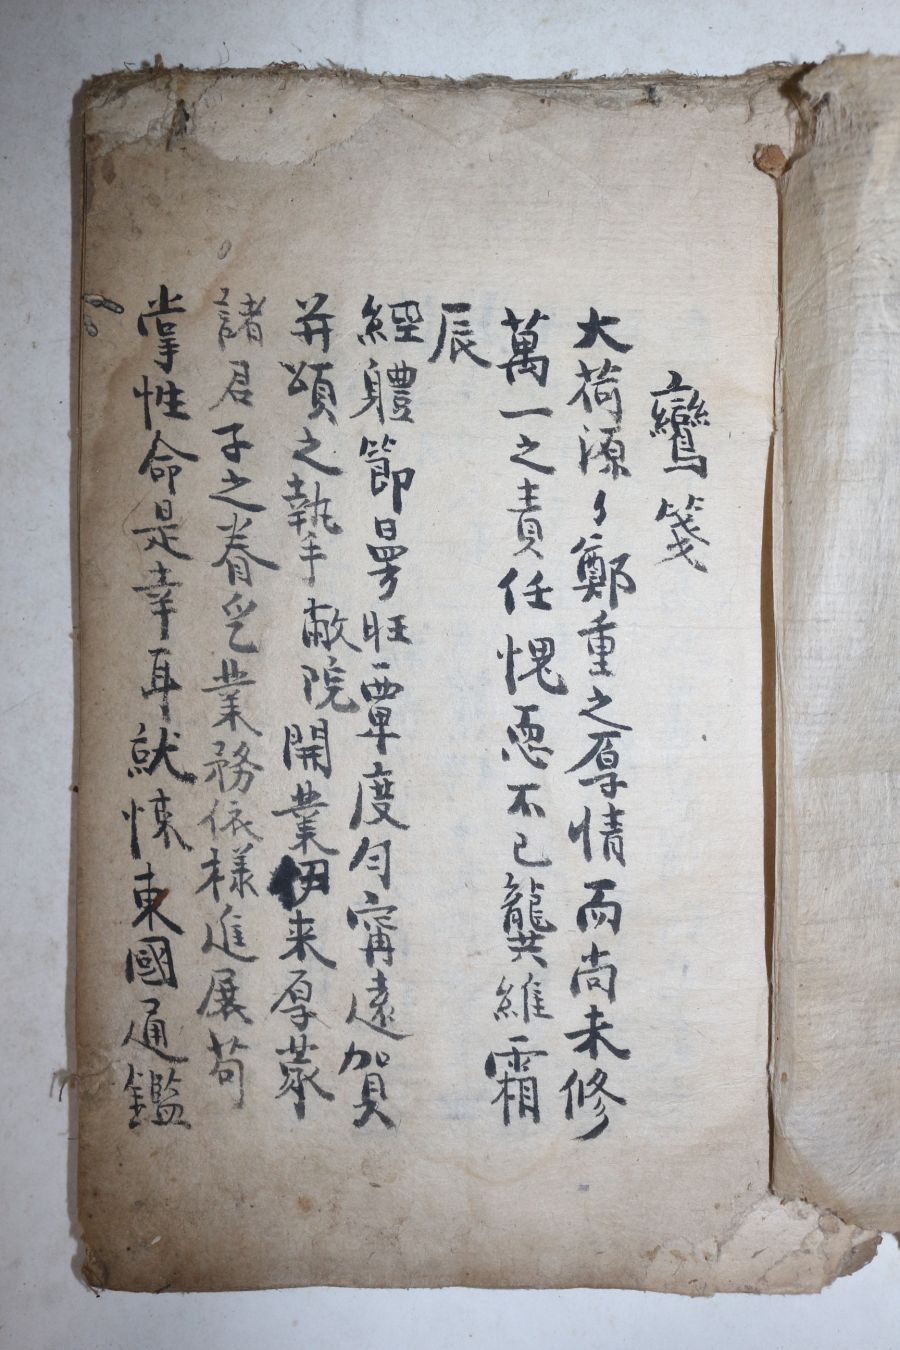 鸞箋
大荷源〻鄭重之厚情而尚未修
萬一之責任愧恧不已龔維霜
辰
經軆節晷旺覃度勻寗遠賀
并頌之執事敝院開業伊来厚蒙
諸君子之眷乏業務依樣進展苟
掌性命是幸耳就悚東國通鑑